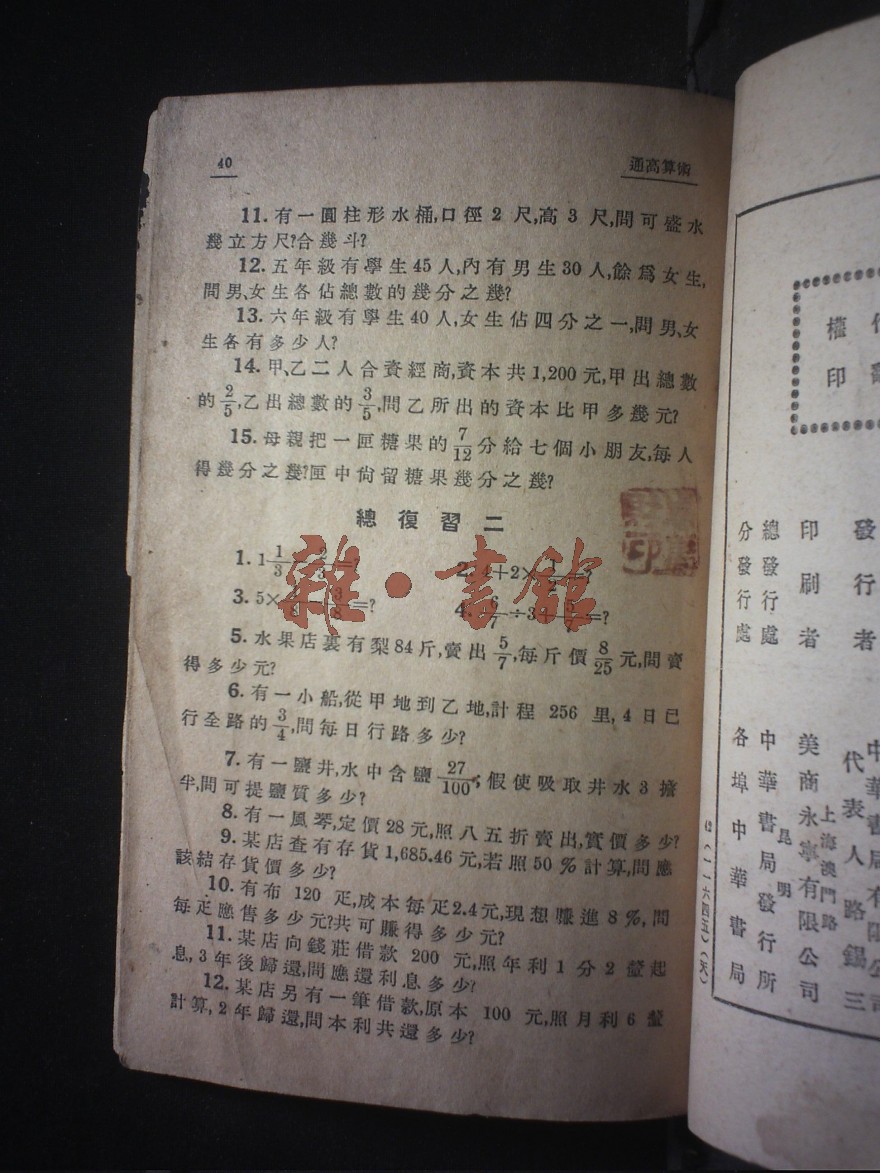 40
通高算術
11. 有一圓柱形水桶,口徑 2 尺,高 3 尺,問可盛水
幾立方尺?合幾斗?
12. 五年級有學生45人,內有男生30人,餘爲女生,
問男、女生各佔總數的幾分之幾?
13. 六年級有學生40人,女生佔四分之一,問男、女
生各有多少人?
14. 甲、乙二人合資經商,資本共1,200元,甲出總數
的2/5,乙出總數的3/5,問乙所出的資本比甲多幾元?
15. 母親把一匣糖果的7/12分給七個小朋友,每人
得幾分之幾?匣中尙留糖果幾分之幾?
總復習二
1. 1 1/3 =?
2. 4+2× =?
3. 5× 3/8=?
4. 6/7÷3+ =?
5. 水果店裏有梨84斤,賣出5/7,每斤價8/25元,問賣
得多少元?
6. 有一小船,從甲地到乙地,計程 256 里, 4 日已
行全路的3/4,問每日行路多少?
7. 有一鹽井,水中含鹽27/100;假使吸取井水 3 擔
半,問可提鹽質多少?
8. 有一風琴,定價28元,照八五折賣出,實價多少?
9. 某店查有存貨1,685.46元,若照50%計算,問應
該結存貨價多少?
10. 有布 120 疋,成本每疋2.4元,現想賺進8%,問
每疋應售多少元?共可賺得多少元?
11. 某店向錢莊借款 200 元,照年利 1 分 2 釐起
息,3年後歸還,問應還利息多少?
12. 某店另有一筆借款,原本 100 元,照月利 6 釐
計算,2年歸還,問本利共還多少?
雜·書館
權
印
發行者
印刷者
總發行處
分發行處
代表人路錫三
上海澳門路
美商永寧有限公司
昆明
中華書局發行所
各埠中華書局
(一一六四五)(天)